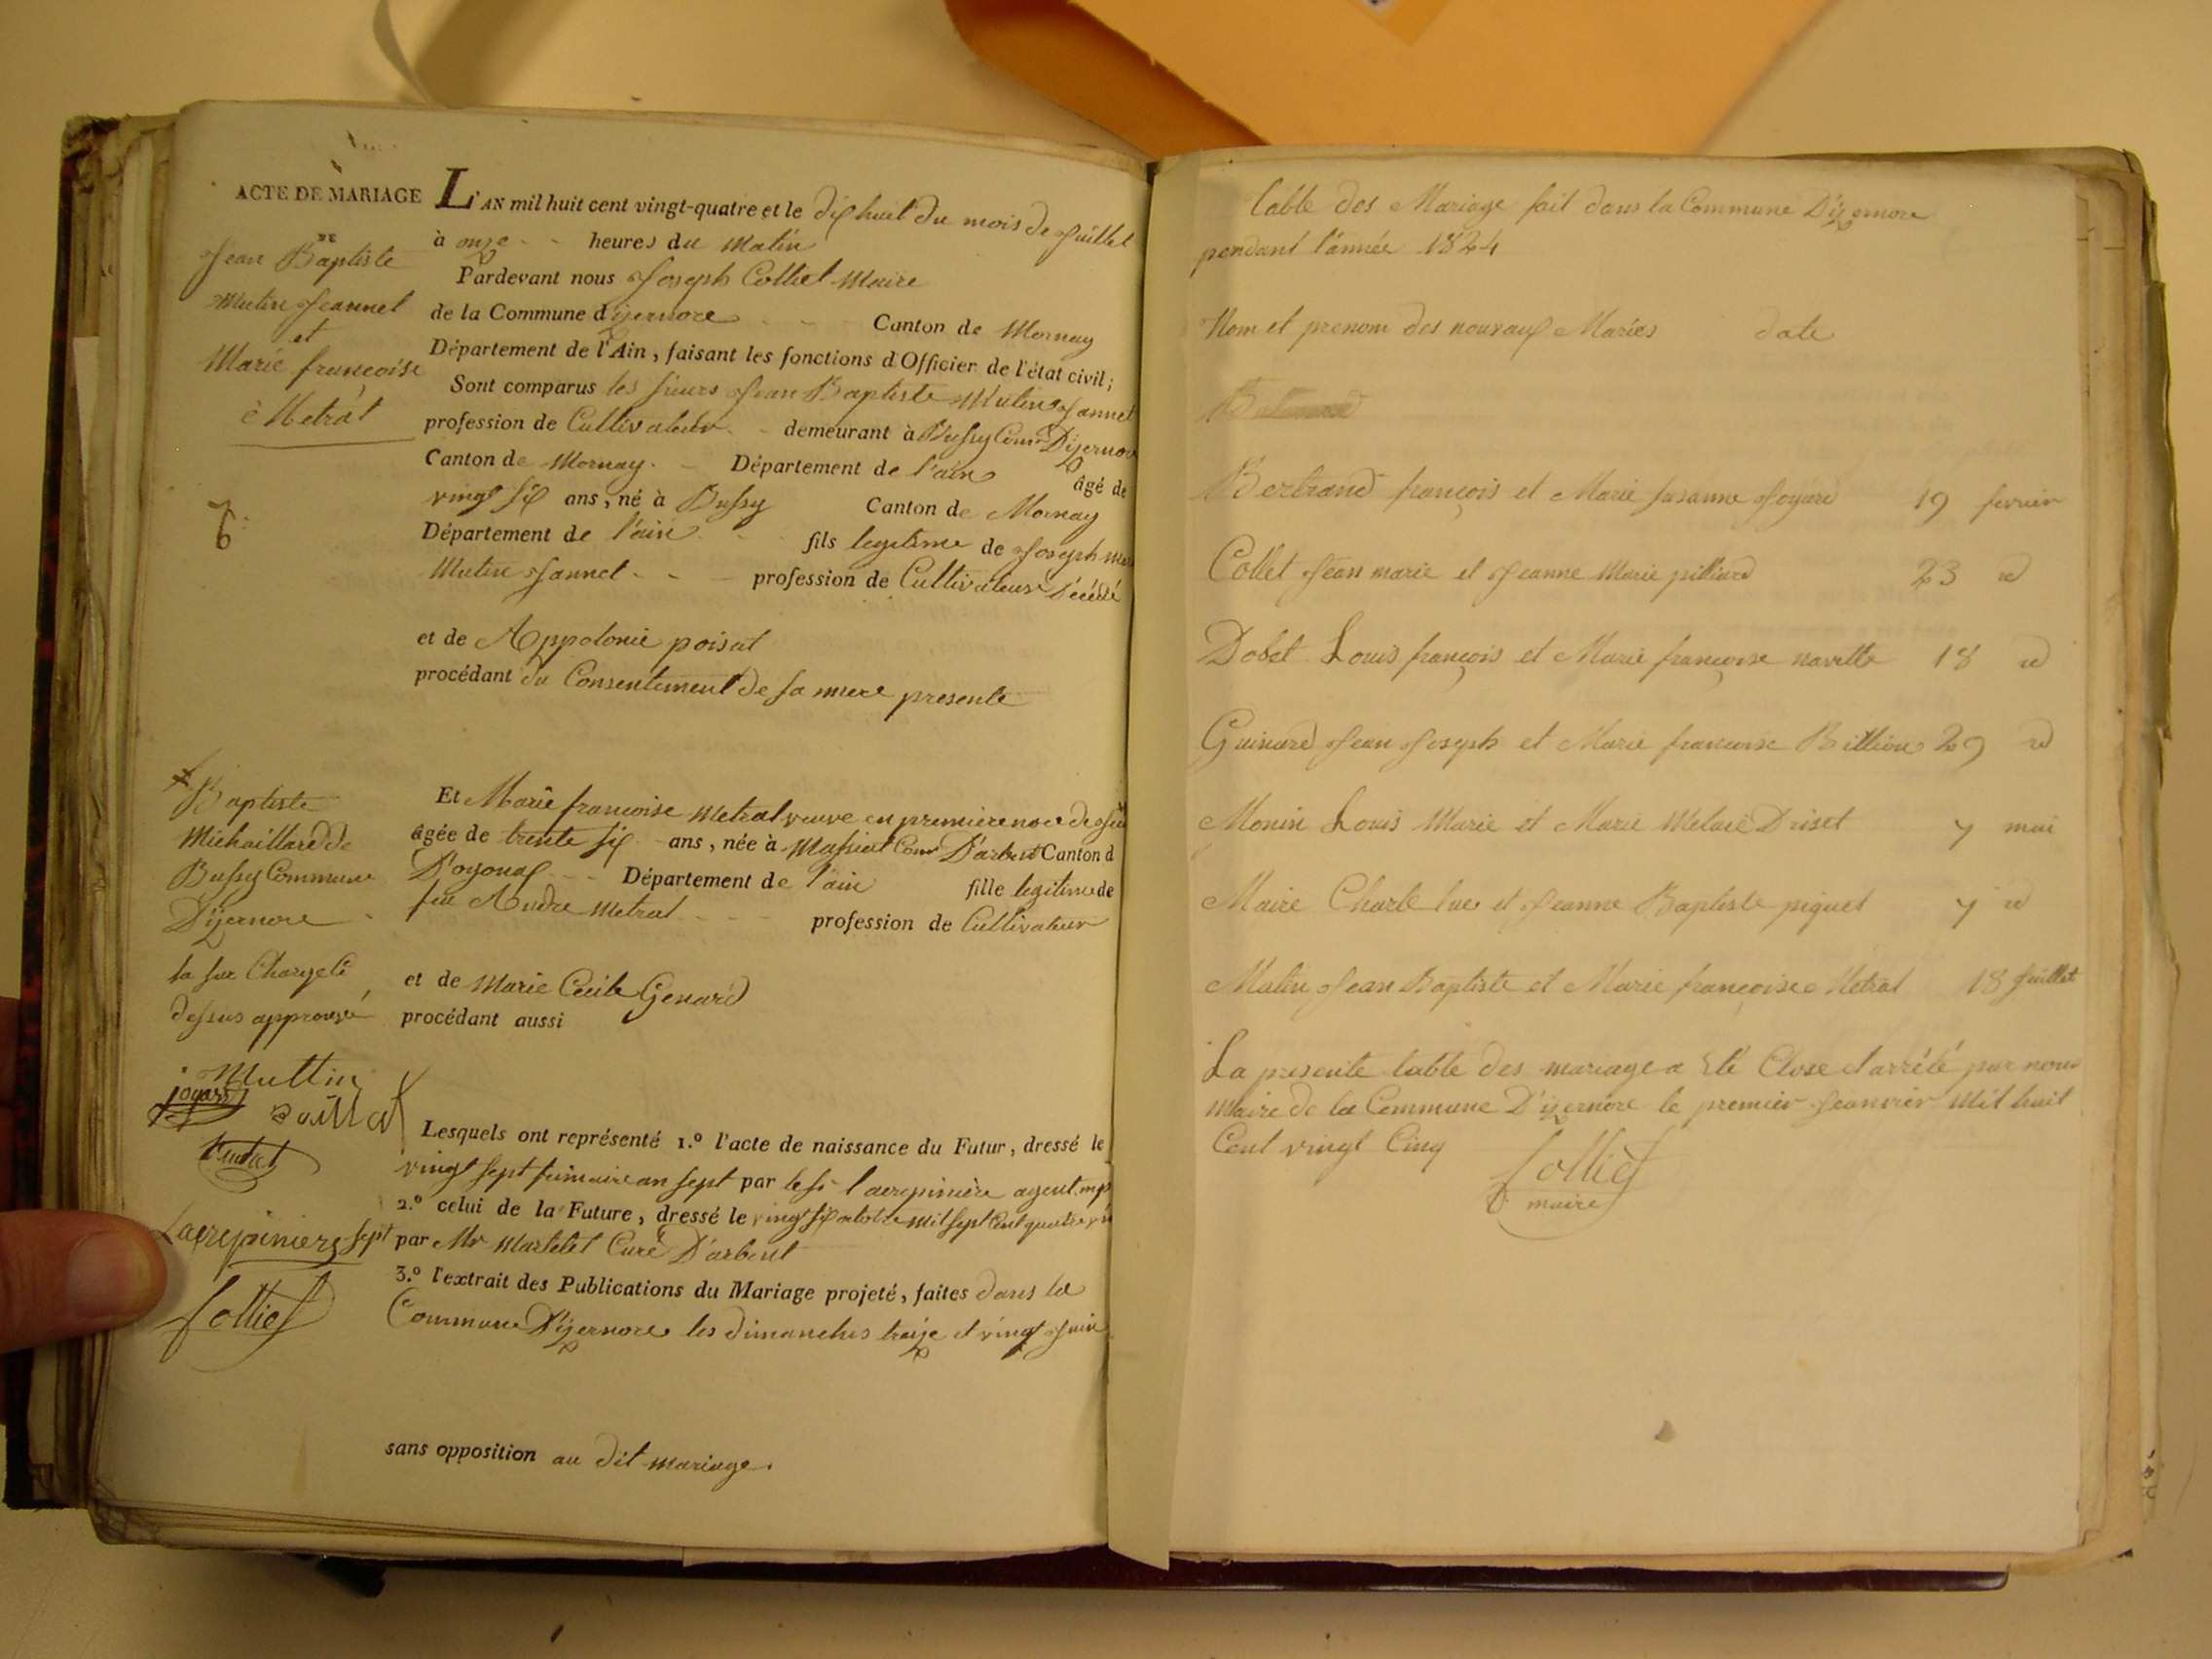 ACTE DE MARIAGE
DE
Jean Baptiste
Mutin Jeannet
et
Marie françoise
Metrat
6
L'AN mil huit cent vingt-quatre et le dix huit du mois de Juillet
à onze heures du Matin
Pardevant nous Joseph Colliet Maire
de la Commune d'izernore Canton de Mornay
Département de l'Ain, faisant les fonctions d'Officier de l'état civil;
Sont comparus les sieurs Jean Baptiste Mutin Jannet
profession de Cultivateur demeurant à Bussy Comne D'izernore
Canton de Mornay Département de l'ain âgé de
vingt six ans, né à Bussy Canton de Mornay
Département de l'ain fils legitime de Joseph
Mutin Jannet profession de Cultivateur Décédé
et de Appolonie poisat
procédant du Consentement de sa mere presente
Et Marie francoise Metrat veuve en premiere noce de feu
âgée de trente six ans, née à Massiat Comne D'arbent Canton d
D'oyonax Département de l'ain fille legitime de
feu Andre Metrat profession de Cultivateur
et de Marie Cecile Genard
procédant aussi
Lesquels ont représenté 1.º l'acte de naissance du Futur, dressé le
vingt sept frimaire an sept par le sr Lacrepinière agent mp
2.º celui de la Future, dressé le vingt six octobre mil sept Cent quatre
par Mr Martelet Curé D'arbent
3.º l'extrait des Publications du Mariage projeté, faites dans la
Commune D'izernore les dimanches traize et vingt Juin
sans opposition au dit mariage.
Baptiste
Michaillard de
Bussy Commune
D'izernore
la sur Charge Ci
dessus approuvé
Muttin
joyard
Lacrepiniere
sept
Colliet
table des Mariage fait dans la Commune D'izernore
pendant l'année 1824
Nom et prenom des nouvaux Mariés date
Bertrand françois et Marie susanne Joyard 19 fevrier
Collet Jean marie et Jeanne Marie pilliard 23 id
Dobet Louis françois et Marie françoise navette 18 id
Guinard Jean Joseph et Marie francoise Billion 29 id
Monin Louis Marie et Marie Melanie Driset 7 mai
Maire Charle luc et Jeanne Baptiste piquet 7 id
Mutin Jean Baptiste et Marie françoise Metrat 18 Juillet
La presente table des mariage a Eté Close et arrêté par nous
Maire de la Commune D'izernore le premier Jeanvier Mil huit
Cent vingt Cinq
Colliet
maire